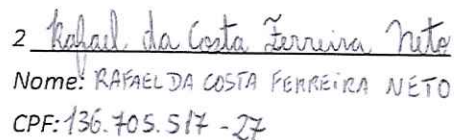 2 Rafael da Costa Ferreira Neto
Nome: RAFAEL DA COSTA FERREIRA NETO
CPF: 136.705.517-27